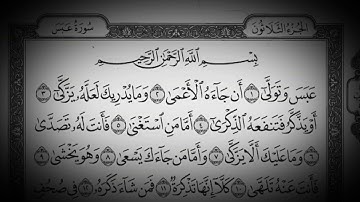 سُورَةُ عَبَسَ
الجُزْءُ الثَّلَاثُونَ
بِسْمِ ٱللَّهِ ٱلرَّحْمَٰنِ ٱلرَّحِيمِ
عَبَسَ وَتَوَلَّىٰٓ ١ أَن جَآءَهُ ٱلْأَعْمَىٰ ٢ وَمَا يُدْرِيكَ لَعَلَّهُۥ يَزَّكَّىٰٓ ٣
أَوْ يَذَّكَّرُ فَتَنفَعَهُ ٱلذِّكْرَىٰٓ ٤ أَمَّا مَنِ ٱسْتَغْنَىٰ ٥ فَأَنتَ لَهُۥ تَصَدَّىٰ
٦ وَمَا عَلَيْكَ أَلَّا يَزَّكَّىٰ ٧ وَأَمَّا مَن جَآءَكَ يَسْعَىٰ ٨ وَهُوَ يَخْشَىٰ ٩
فَأَنتَ عَنْهُ تَلَهَّىٰ ١٠ كَلَّآ إِنَّهَا تَذْكِرَةٌ ١١ فَمَن شَآءَ ذَكَرَهُۥ ١٢ فِى صُحُفٍ